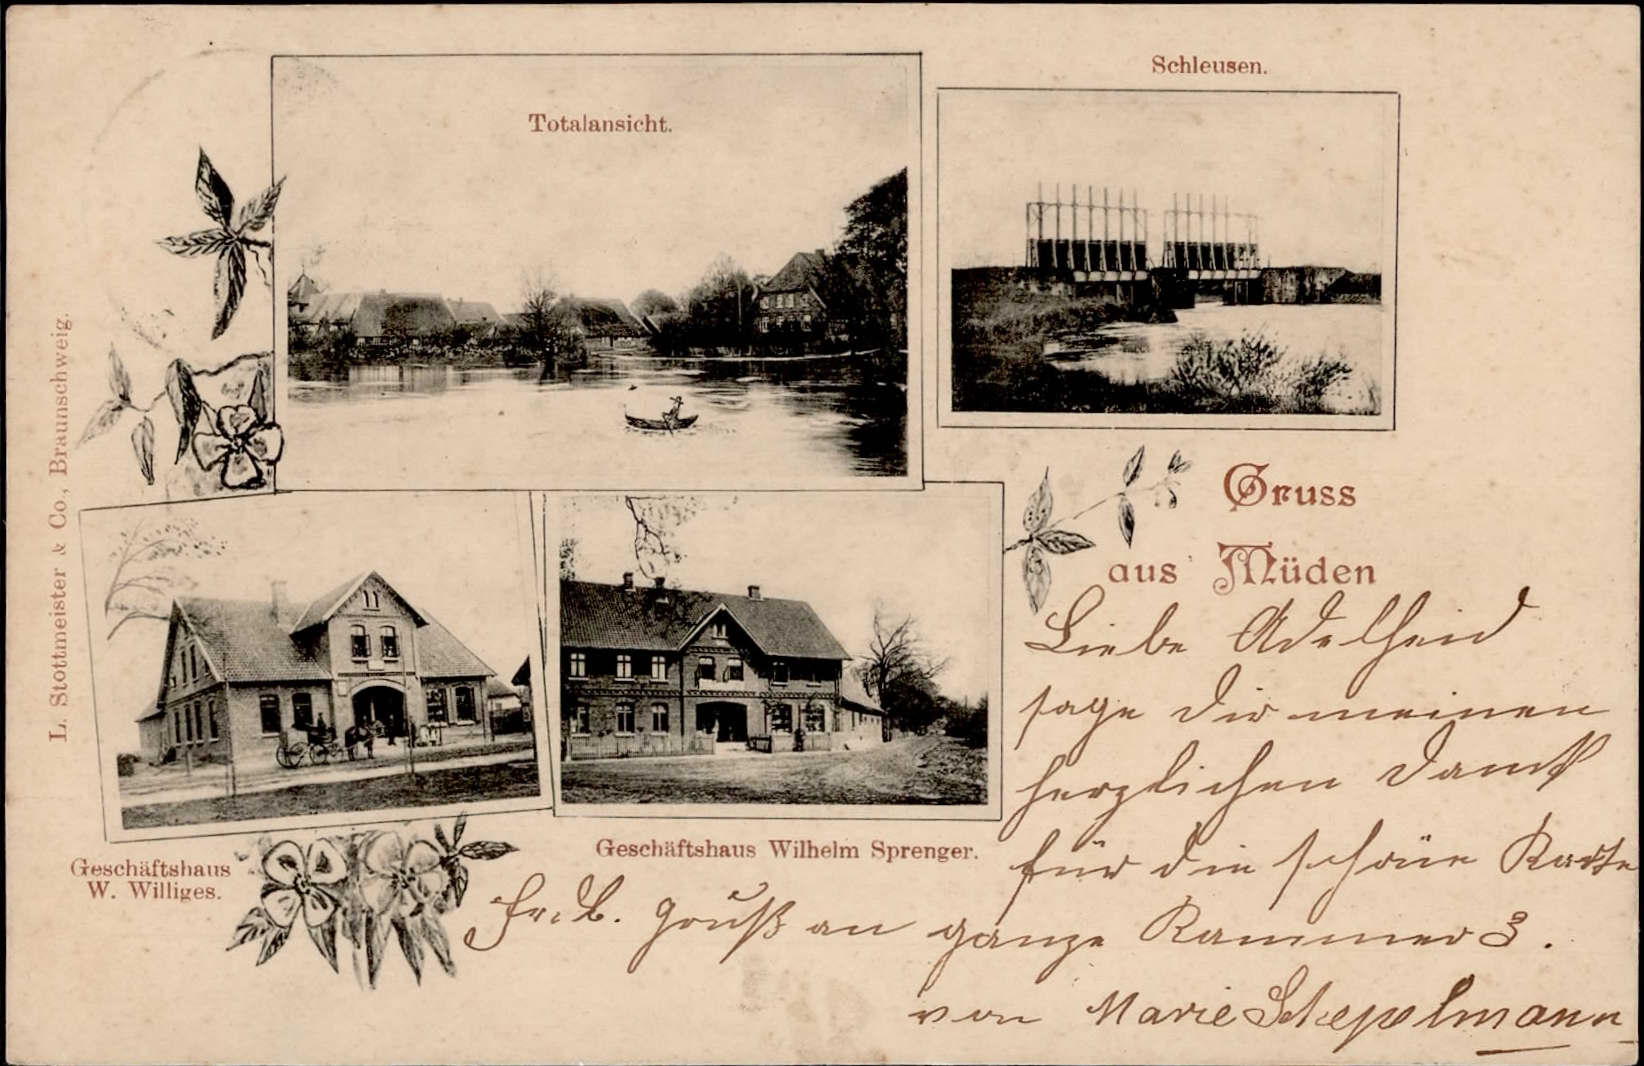 Totalansicht.
Schleusen.
L. Stottmeister & Co., Braunschweig.
Gruss
aus Müden
Geschäftshaus
W. Williges.
Geschäftshaus Wilhelm Sprenger.
Liebe Adelheid
sage Dir meinen
herzlichen Dank
für die schöne Karte
Gruß an ganze Kammer 3.
von Marie Stepelmann